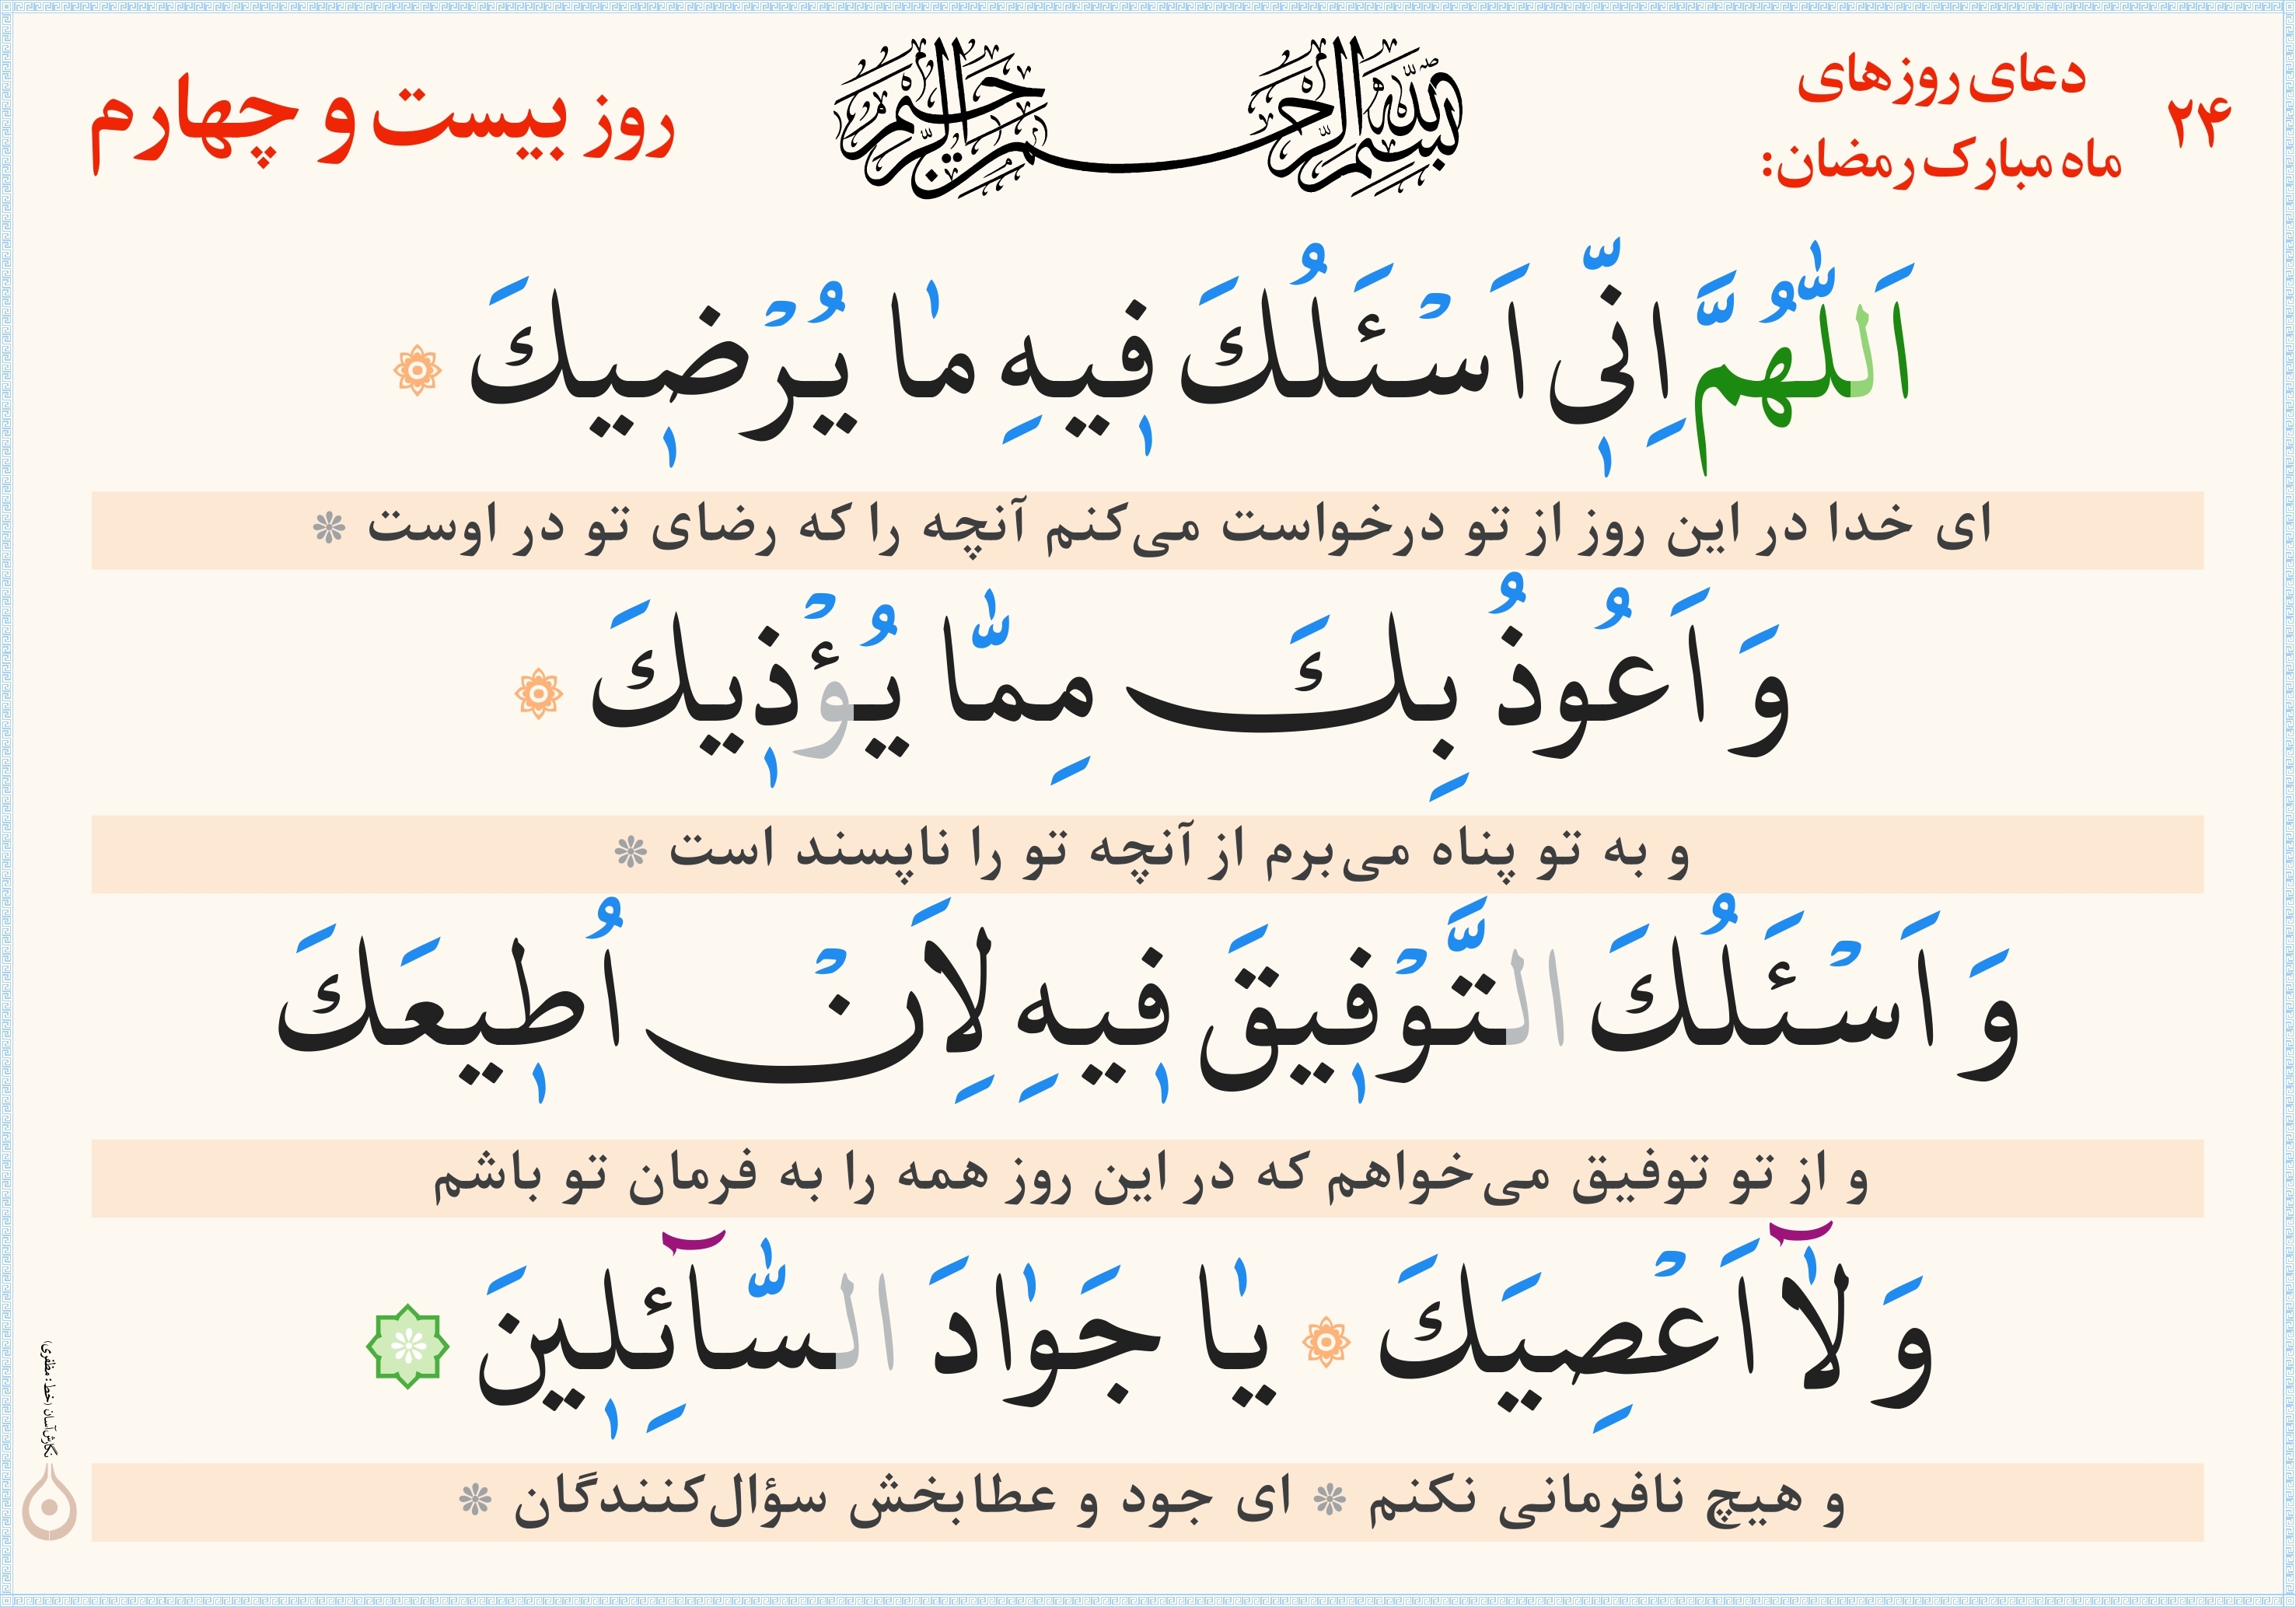 ۲۴
دعای روزهای
ماه مبارک رمضان:
بسم الله الرحمن الرحیم
روز بیست و چهارم
اَللّٰهُمَّ اِنّٖی اَسْئَلُكَ فٖیهِ مٰا یُرْضٖیكَ
ای خدا در این روز از تو درخواست می‌کنم آنچه را که رضای تو در اوست
وَ اَعُوذُ بِكَ مِمّٰا یُؤْذٖیكَ
و به تو پناه می‌برم از آنچه تو را ناپسند است
وَ اَسْئَلُكَ التَّوْفٖیقَ فٖیهِ لِاَنْ اُطٖیعَكَ
و از تو توفیق می‌خواهم که در این روز همه را به فرمان تو باشم
وَ لٰآ اَعْصِیَكَ یٰا جَوٰادَ السّٰآئِلٖینَ
و هیچ نافرمانی نکنم ای جود و عطابخش سؤال‌کنندگان
نگارش‌آسان (خط: مظفری)